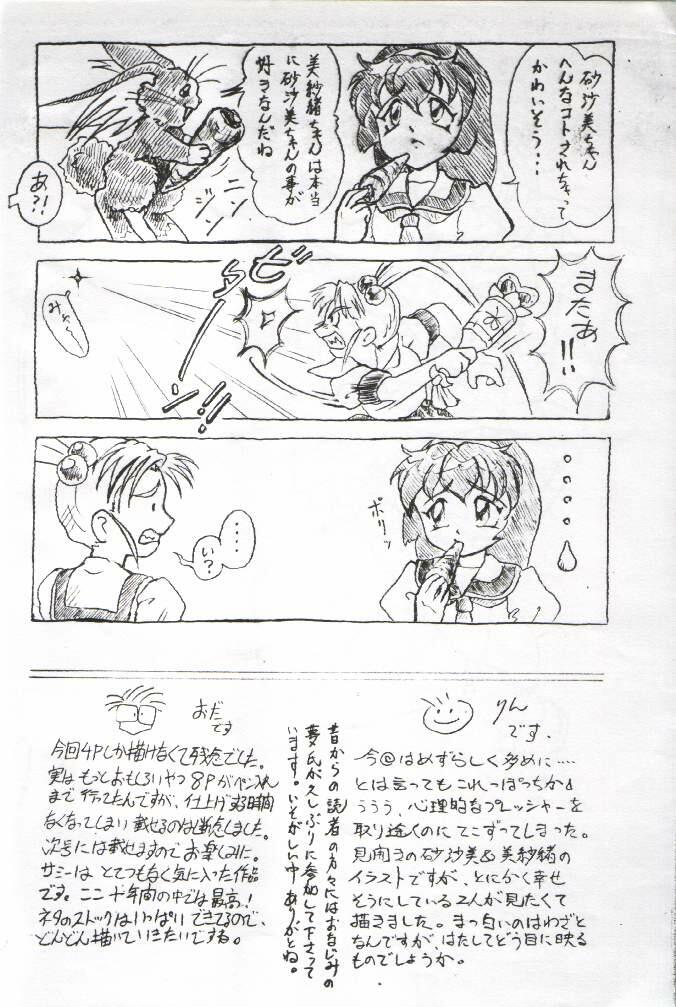 砂沙美ちゃん
へんなコトされちゃって
かわいそう・・・
美紗緒ちゃんは本当
に砂沙美ちゃんの事が
好きなんだね
ニン
ジン
あ?!
またぁ!!
みぎゃ
・・・・
ポリッ
・・・・
い?
りん
です.
今回はめずらしく多めに‥‥
とは言ってもこれっぽっちか
ううう、心理的なプレッシャーを
取り除くのにてこずってしまった。
見開きの砂沙美&美紗緒の
イラストですが、とにかく幸せ
そうにしている2人が見たくて
描きました。まっ匂いのはわざと
なんですが、はたしてどう目に映る
ものでしょうか。
昔からの読者の方々にはおなじみの
夢氏が久しぶりに参加して下さって
います。いそがしい中ありがとね。
おだ
です
今回4Pしか描けなくて残念でした。
実はもっとおもしろいやつ8Pがペン入れ
まで行ってたんですが、仕上げする時間
なくなってしまい載せるのは断念しました。
次号には載せますのでお楽しみに。
サミーはとてつもなく気に入った作品
です。ここ十年間の中では最高!
ネタのストックはいっぱいできてるので、
どんどん描いていきたいですね。